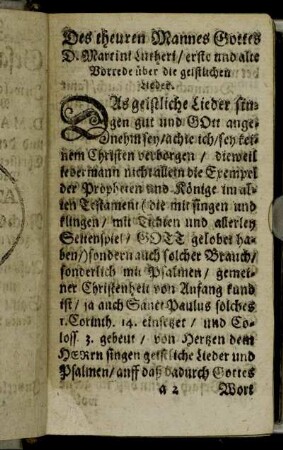 Des theuren Mannes Gottes
D. Martini Lutheri / erste und alte
Vorrede über die geistlichen
Lieder.
DAs geistliche Lieder sin-
gen gut und GOtt ange-
nehm sey / achte ich / sey kei-
nem Christen verborgen / dieweil
jedermann nicht allein die Exempel
der Propheten und Könige im al-
ten Testament / die mit singen und
klingen / mit Tichten und allerley
Seitenspiel / GOTT gelobet ha-
ben /) sondern auch solcher Brauch /
sonderlich mit Psalmen / gemei-
ner Christenheit von Anfang kund
ist / ja auch Sanct Paulus solches
1. Corinth. 14. einsetzet / und Co-
loss. 3. gebeut / von Hertzen dem
HERRN singen geistliche Lieder und
Psalmen / auff daß dadurch Gottes
a 2 Wort